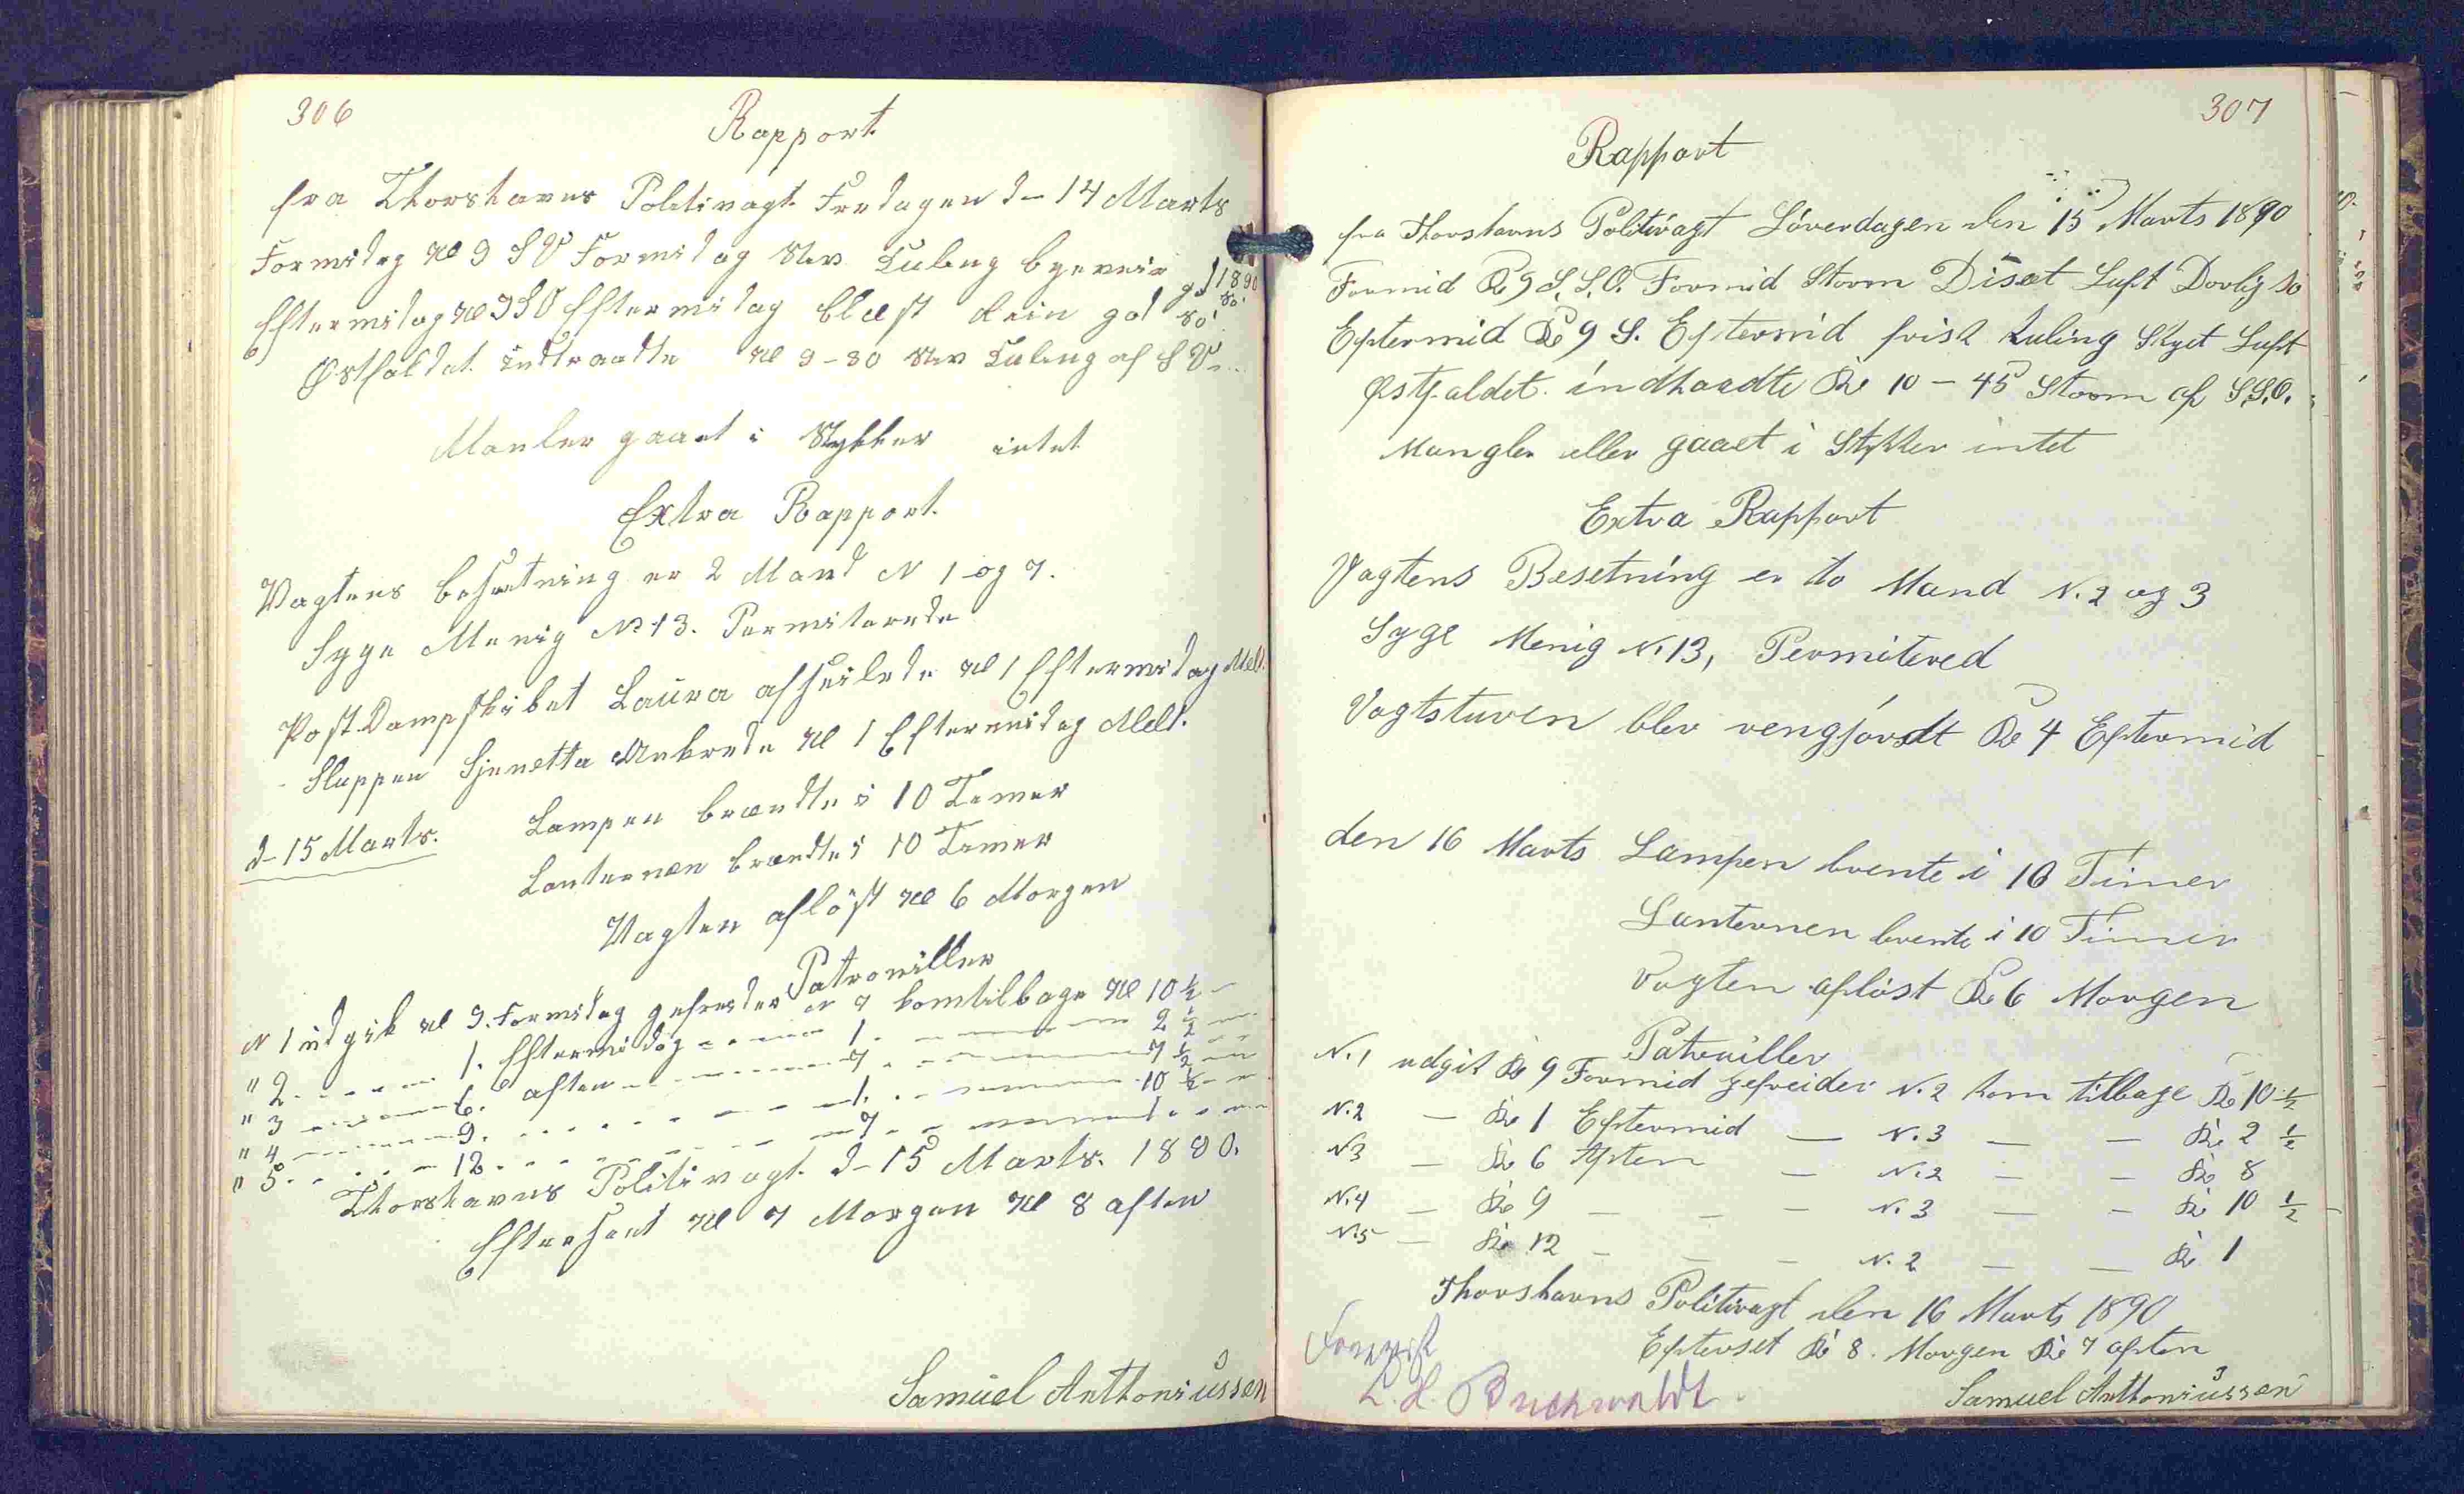 306
Rapport
fra Thorshavns Politivagt Fredagen d- 14 Marts
1890
Formidag Kl 9 SV Formidag Stiv Kuling byeveir god
Eftermidag Kl 9 SV Eftermidag blæst Rein god
Østfaldet indtraadte Kl 9-30 Stiv Kuling af SV
Manler gaaet i Stykker intet
Extra Rapport.
Vagtens besætning er 2 Mand N 1 og 7.
Syge Menig No 13. Permiterede
Post Dampskibet Laura afseilede Kl 1 Eftermidag Meld.
Sluppen Sjenetta Ankrede Kl 1 Eftermidag Meld.
d- 15 Marts. Lampen brændte i 10 Timer
Lanternen brændte i 10 Timer
Vagten afløst Kl 6 Morgen
Patrouiller
N 1 udgik Kl 9. Formidag gefreider N 7 kom tilbage Kl 10 ½
" 2 1. Eftermidag 1. 2 ½
" 3 6. aften 7 7 ½
" 4 9. 1. 10 ½
" 5 12. 7 1
Thorshavns Politivagt d- 15 Marts. 1890.
Efterseet Kl 7 Morgen Kl 8 aften
Samuel Anthoniussen
307
Rapport
fra Thorshavns Politivagt Löverdagen den 15 Marts 1890
Formid Kl 9 S.S.O. Formid Storm Diset Luft Dovlig So
Eftermid Kl 9 S. Eftermid frisk Kuling Skyet Luft
Østfaldet indtraadte Kl 10 - 45 Storm af S.S.O.
Mangler eller gaaet i Stykker intet
Extra Rapport
Vagtens Besetning er to Mand N. 2 og 3
Syge Menig N. 13, Permitered
Vagtstuven blev rengjordt Kl 4 Eftermid
den 16 Marts Lampen brente i 10 Timer
Lanternen brente i 10 Timer
Vagten aflöst Kl 6 Morgen
Patruiller
N. 1 udgik Kl 9 Formid gefreider N. 2 kom tilbage Kl 10 ½
N. 2 — Kl 1 Eftermid — N. 3 — — Kl 2 ½
N 3 — Kl 6 Aften — N. 2 — — Kl 8
N. 4 — Kl 9 — — — N. 3 — — Kl 10 ½
N. 5 — Kl 12 — — — N. 2 — — Kl 1
Thorshavns Politivagt den 16 Marts 1890
Efterset Kl 8. Morgen Kl 7 aften
Samuel Anthoniussen
Forevist
L. H. Buchwaldt.